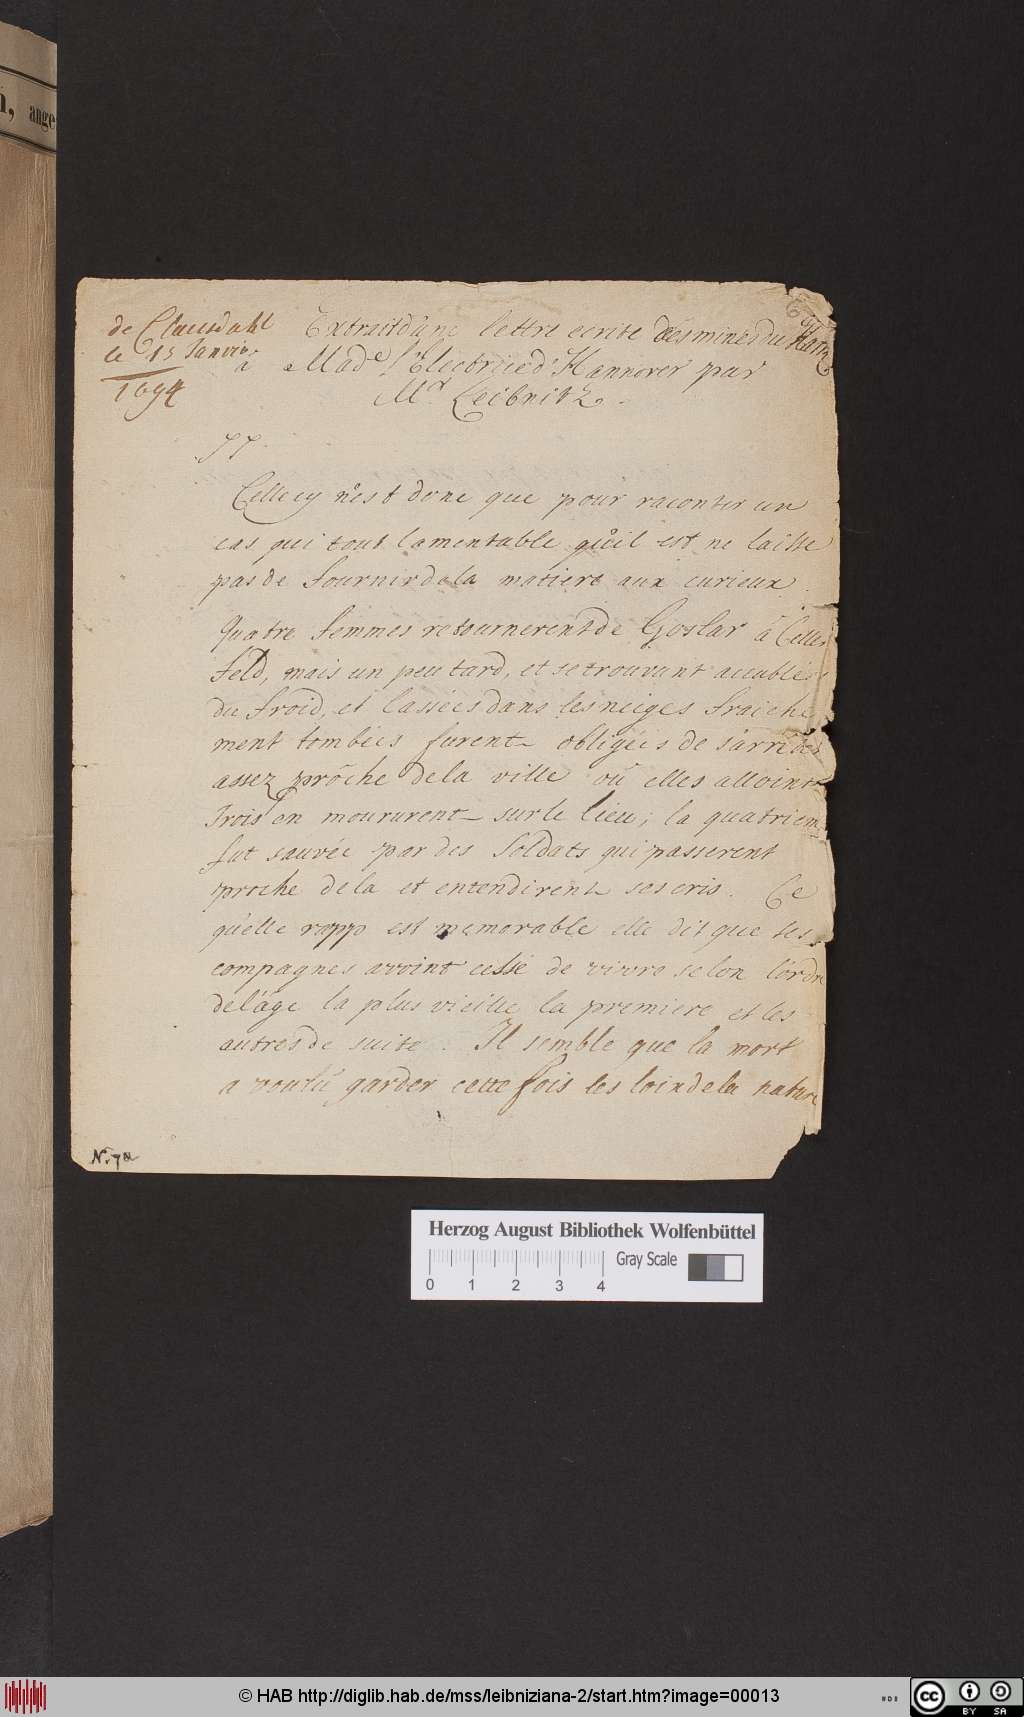 n, ange
de Clausdahl
le 15 Janvier
1694
Extrait d'une lettre ecrite des mines du Hartz
a Made l'Electrice d' Hannover par
Mr Leibnitz.
Celle cy n'est donc que pour raconter un
cas qui tout lamentable qu'il est ne laisse
pas de fournir de la matiere aux curieux.
Quatre femmes retournerent de Goslar à Celler
feld, mais un peu tard, et se trouvant accablées
du froid, et lassées dans les neiges fraiche
ment tombées furent obligées de s'arreter
assez prôche de la ville où elles alloint
Trois en moururent sur le lieu; la quatriem
fut sauvée par des Soldats qui passerent
proche de la et entendirent ses cris. Ce
qu'elle rapp est memorable elle dit que ses
compagnes avoint cessé de vivre selon l'ordre
de l'âge la plus vieille la premiere et les
autres de suite. Il semble que la mort
a voulû garder cette fois les loix de la nature
N. 7a
Herzog August Bibliothek Wolfenbüttel
Gray Scale
0 1 2 3 4
© HAB http://diglib.hab.de/mss/leibniziana-2/start.htm?image=00013
cc BY SA